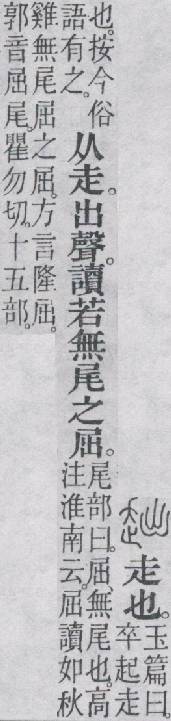 䞷走也。玉篇曰。
卒起走
也。按今俗
語有之。
从走。出聲。讀若無尾之屈。
尾部曰。屈、無尾也。高
注淮南云。屈讀如秋
雞無尾屈之屈。方言隆屈。
郭音屈尾。瞿勿切。十五部。